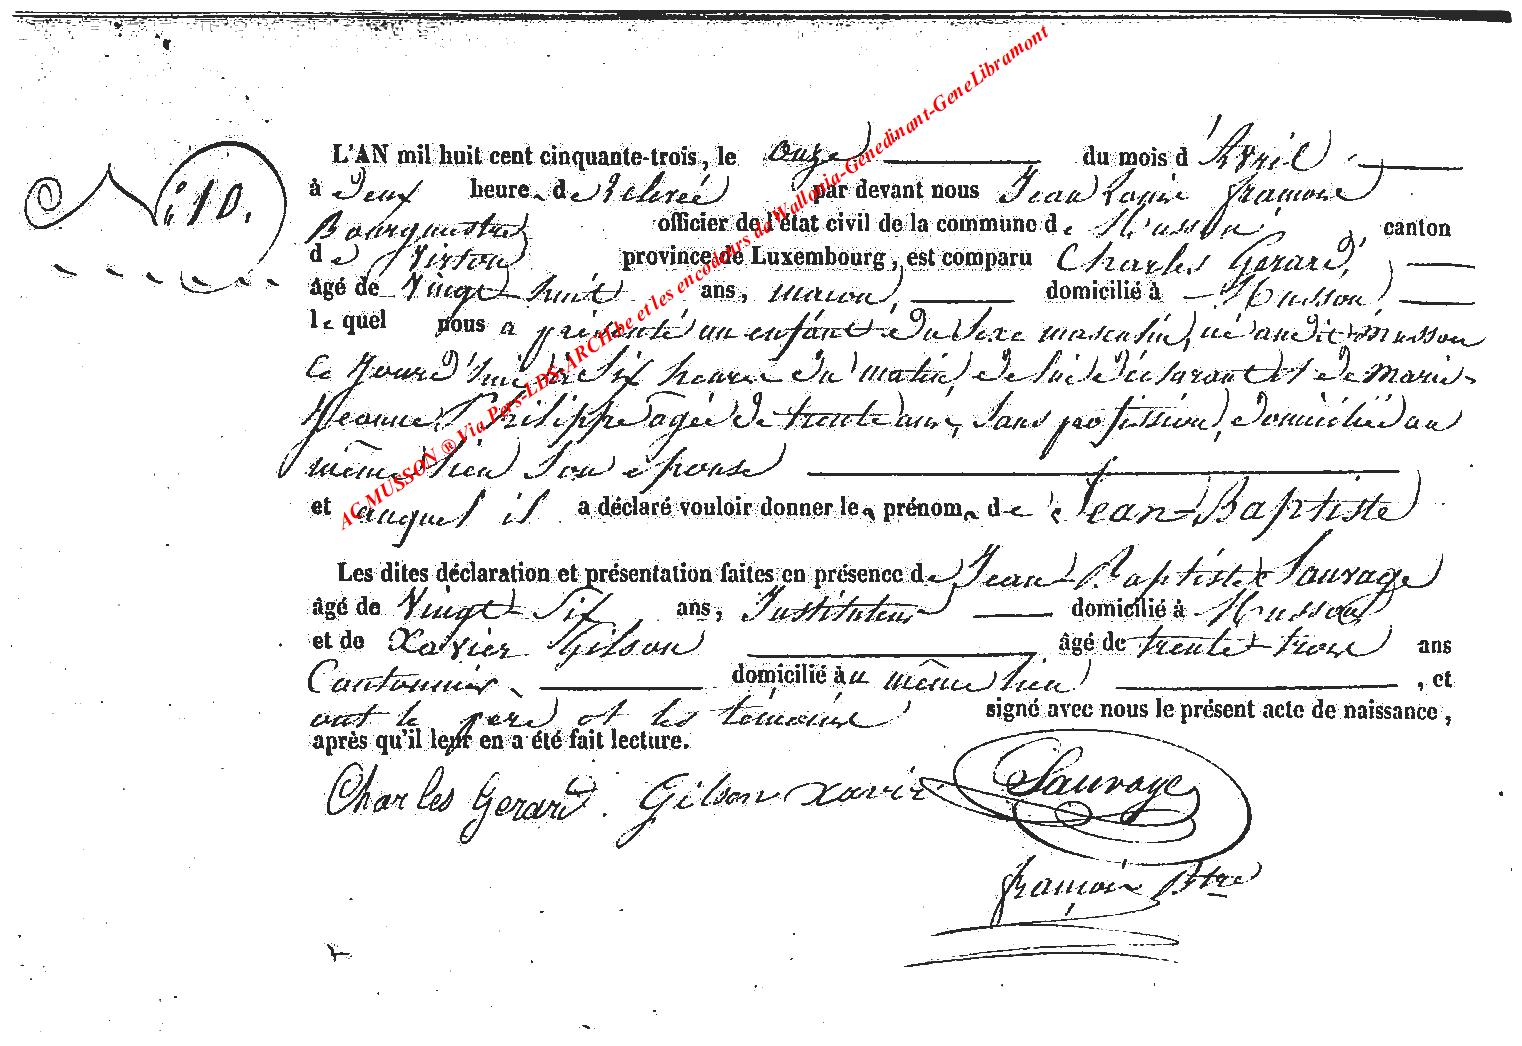 N° 10.
L'AN mil huit cent cinquante-trois, le onze du mois d'Avril
à Deux heures de Relevée par devant nous Jean Louis françois
Bourgmestre officier de l'état civil de la commune de Musson, canton
de Virton province de Luxembourg, est comparu Charles Gerard,
âgé de Vingt-huit ans, macon, domicilié à Musson
lequel nous a présenté un enfant du sexe masculin, né audit Musson
Ce Jourd'hui à Six heures du matin, de lui déclarant et de marie-
Jeanne Philippe âgée de trente ans, sans profession, domiciliée au
même lieu son épouse
et auquel il a déclaré vouloir donner les prénoms de Jean-Baptiste
Les dites déclaration et présentation faites en présence de Jean-Baptiste Sauvage
âgé de Vingt-Six ans, Instituteur domicilié à Musson
et de Xavier Gilson âgé de trente-trois ans
Cantonnier domicilié au même lieu, et
ont le père et les témoins signé avec nous le présent acte de naissance,
après qu'il leur en a été fait lecture.
Charles Gerard. Gilson xavir Sauvage
françois Btre
AC MUSSON ® Via Pers-LDS-ARCH.be et les encodeurs de Wallonia-Genedinant-GeneLibramont